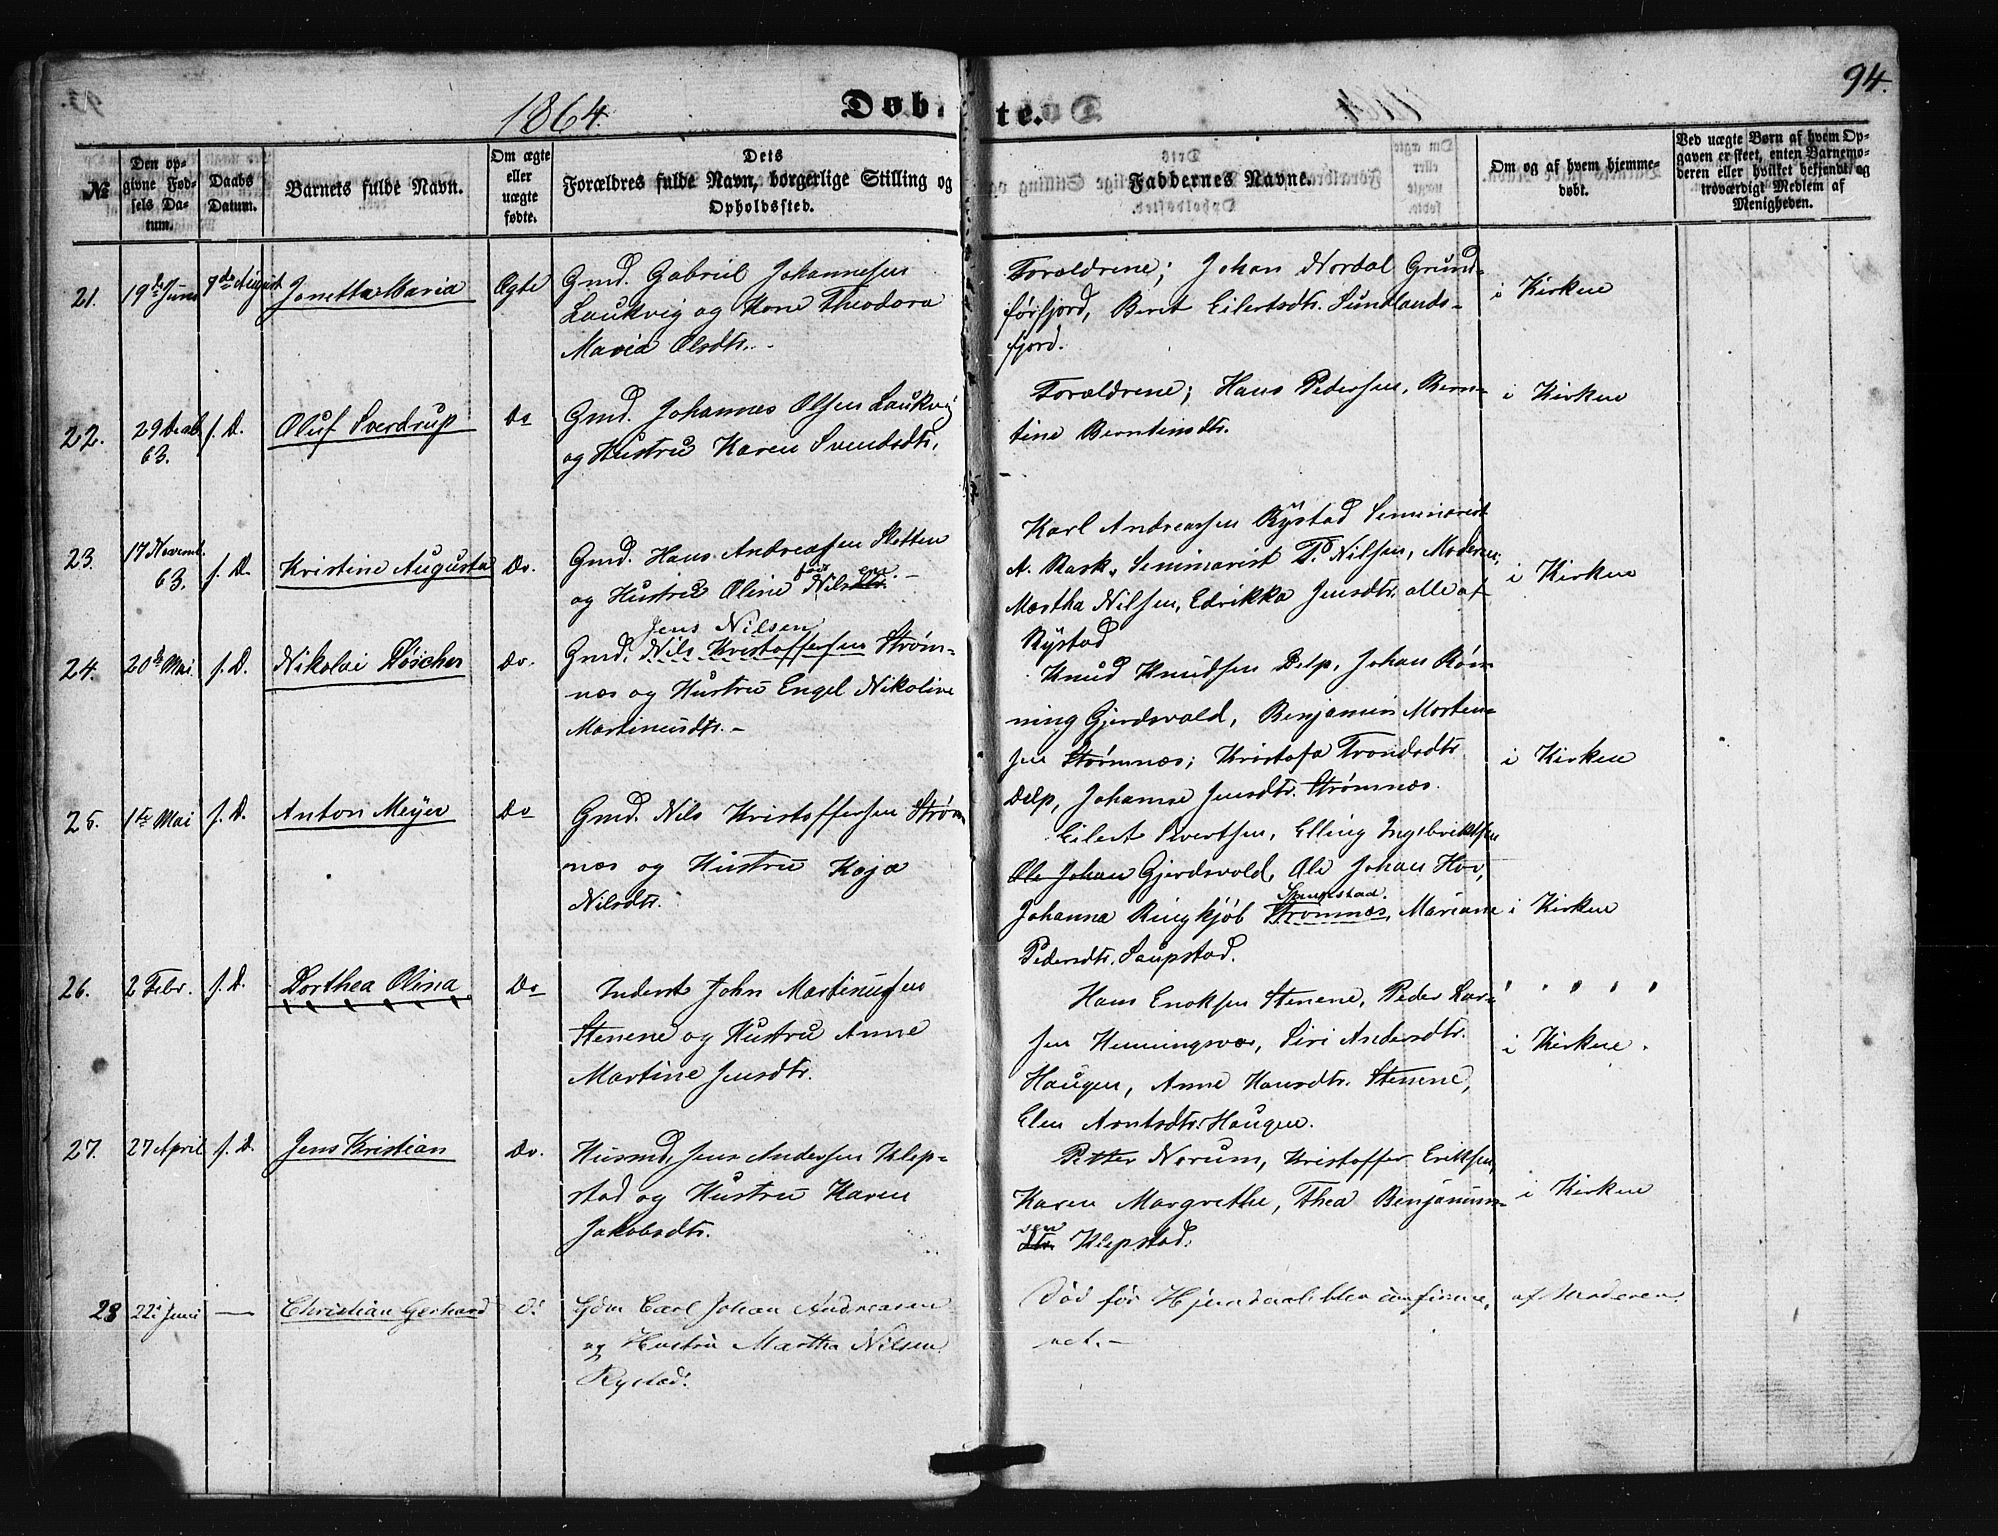 94.
1864.
Døb-
te.
№
Den op-
givne Fød-
sels Da-
tum.
Daabs
Datum.
Barnets fulde Navn.
Om ægte
eller
uægte
fødte.
Dets
Forældres fulde Navn, borgerlige Stilling og
Opholdssted.
Faddernes Navne.
Om og af hvem hjemme-
døbt.
Ved uægte Børn af hvem Op-
gaven er skeet, enten Barnemo-
deren eller hvilket bekjendt og
troværdigt Medlem af
Menigheden.
21.
19de Juni
7de August
Jonetta Maria
Ægte
Gmd. Gabriel Johannesen
Laukvig og Kone Theodora
Maria Olsdtr.
Forældrene; Johan Nordal Grund-
førfjord, Beret Eilertsdtr. Sundlands-
fjord.
i Kirken
22.
29 Decb.
63.
s. D.
Oluf Sverdrup
Do
Gmd. Johannes Olsen Laukvig
og Hustru Karen Svendsdtr.
Forældrene; Hans Pedersen, Bern-
tine Berntensdtr.
i Kirken
23.
17 Novemb.
63.
s. D.
Kristine Augusta
Do.
Gmd. Hans Andreassen Sletten
og Hustru Oline født Nilsdtr. en.
Karl Andreassen Rystad Seminarist
A. Rask, Seminarist P. Nilsen, Moderen,
Martha Nilsen, Edrikka Jensdtr. alle af
Rystad
i Kirken
24.
20de Mai
s. D.
Nikolai Döscher
Do.
Jens Nilsen
Gmd. Nils Kristoffersen Strøm-
næs og Hustru Engel Nikoline
Martinusdtr.
Knud Knudsen Delp, Johan Røn-
ning Gjerdsvold, Benjamin Morten-
sen Strømnæs; Kristofa Trondsdtr.
Delp, Johanne Jensdtr. Strømnæs.
i Kirken
25.
1te Mai
s. D.
Anton Meyer
Do
Gmd. Nils Kristoffersen Strøm
næs og Hustru Kaja
Nilsdtr.
Eilert Sivertsen, Elling Ingebriktsen
Ole Johan Gjerdsvold, Ole Johan Hov,
Spungstad.
Johanna Ringkjöb Strømnæs, Mariane
Pedersdtr. Saupstad.
i Kirken
26.
2 Febr.
s. D.
Dorthea Olina
Do
Inderst John Martinussen
Stenene og Hustru Anne
Martine Jensdtr.
Hans Enoksen Stenene, Peder Lar-
sen Henningsvær, Siri Andersdtr.
Haugen, Anne Hansdtr. Stenene,
Elen Arntsdtr. Haugen.
i Kirken.
27.
27 April
s. D.
Jens Kristian
Do.
Husmd. Jens Andersen Klep-
stad og Hustru Karen
Jakobsdtr.
Petter Norum, Kristoffer Eriksen,
Karen Margrethe, Thea Benjamin-
sen
dtr. Klepstad.
i Kirken
28
22de Juni
—
Christian Gerhard
Do
Gdm Carl Johan Andreasen
og Hustru Martha Nilsen
Rystad.
Død før Hjemdaab blev confirme-
ret.
af Moderen.